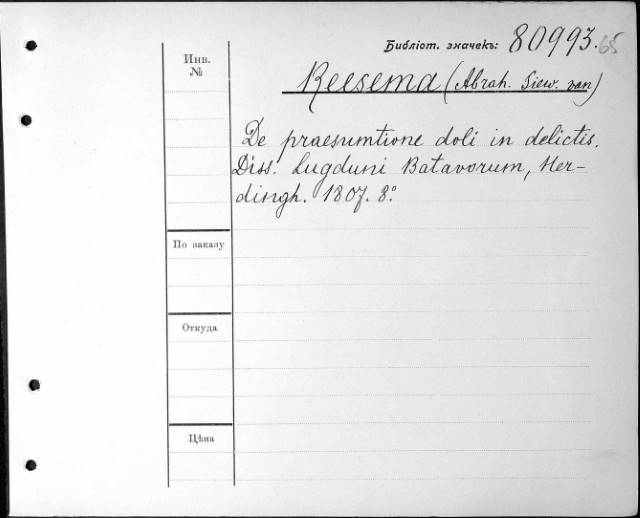 Библіот. значекъ: 80993.65
Инв. №
Reesema (Abrah. Siew. van)
De praesumtione doli in delictis.
Diss. Lugduni Batavorum, Her-
dingh. 1807. 8°.
По заказу
Откуда
Цѣна